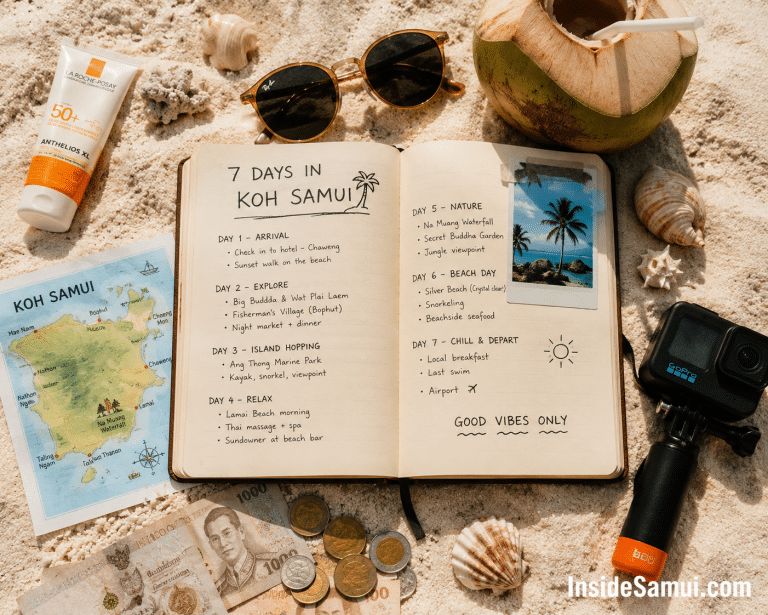 LA ROCHE-POSAY
50+
ANTHELIOS XL
Ray-Ban
7 DAYS IN
KOH SAMUI
DAY 1 – ARRIVAL
• Check in to hotel – Chaweng
• Sunset walk on the beach
DAY 2 – EXPLORE
• Big Buddha & Wat Plai Laem
• Fisherman's Village (Bophut)
• Night market + dinner
DAY 3 – ISLAND HOPPING
• Ang Thong Marine Park
• Kayak, snorkel, viewpoint
DAY 4 – RELAX
• Lamai Beach morning
• Thai massage + spa
• Sundowner at beach bar
DAY 5 – NATURE
• Na Muang Waterfall
• Secret Buddha Garden
• Jungle viewpoint
DAY 6 – BEACH DAY
• Silver Beach (Crystal clear)
• Snorkeling
• Beachside seafood
DAY 7 – CHILL & DEPART
• Local breakfast
• Last swim
• Airport
GOOD VIBES ONLY
KOH SAMUI
Mae Nam
Bophut
Choeng
Mon
Nathon
Chaweng
Nathon
Lamai
Na Muang
Waterfall
Taling
Ngam
Thanon
1000
1000
GoPro
InsideSamui.com